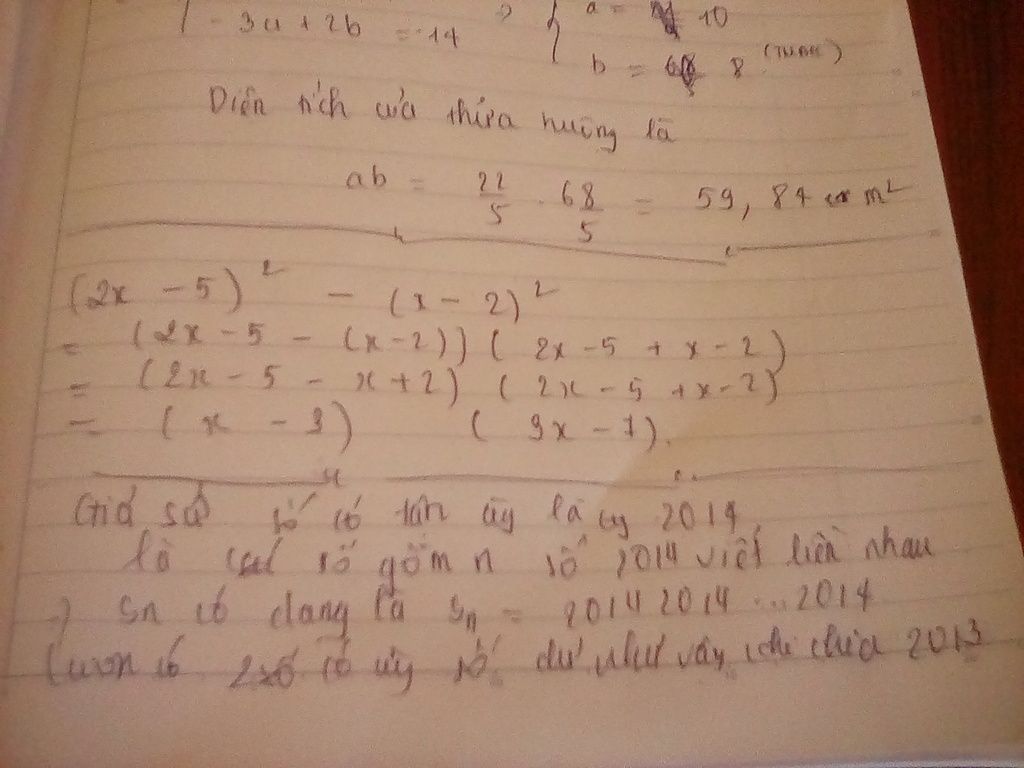 - 3a + 2b = 14 => { a = 10
b = 8
Diện tích của thửa ruộng là
ab = 22/5 . 68/5 = 59,84 m²
(2x - 5)² - (x - 2)²
= (2x - 5 - (x - 2)) (2x - 5 + x - 2)
= (2x - 5 - x + 2) (2x - 5 + x - 2)
= (x - 3) (3x - 7).
Giả sử số có tận là 2014
là số gồm n số 2014 viết liền nhau
=> Sn có dạng là Sn = 2014 2014 ... 2014
Luôn có 2 số có số dư như vậy khi chia 2013